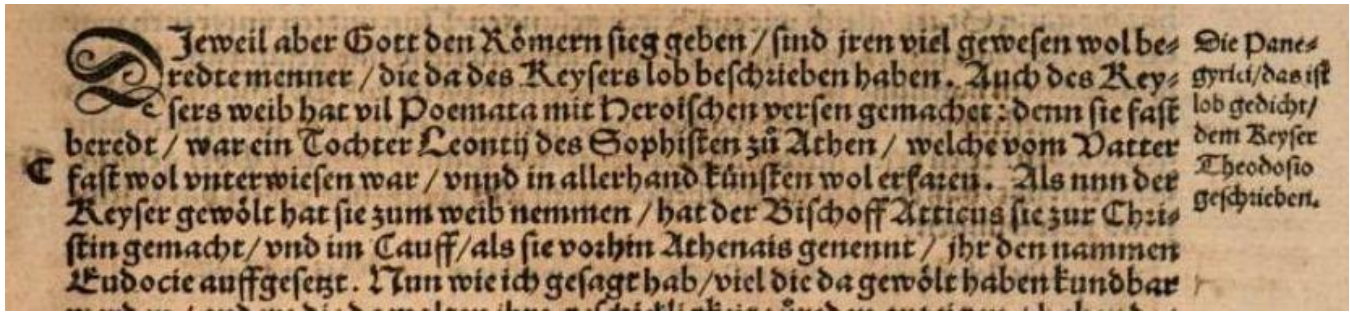 DJeweil aber Gott den Römern sieg geben / sind jren viel gewesen wol be⸗
redte menner / die da des Keysers lob beschrieben haben. Auch des Key⸗
sers weib hat vil Poemata mit Heroischen versen gemachet: denn sie fast
beredt / war ein Tochter Leontij des Sophisten zů Athen / welche vom Vatter
fast wol vnterwiesen war / vnnd in allerhand künsten wol erfaren. Als nun der
Keyser gewölt hat sie zum weib nemmen / hat der Bischoff Atticus sie zur Chri⸗
stin gemacht / vnd im Tauff / als sie vorhin Athenais genennt / jhr den nammen
Eudocie auffgesetzt. Nun wie ich gesagt hab / viel die da gewölt haben kundbar
Die Pane⸗
gyrici / das ist
lob gedicht /
dem Keyser
Theodosio
geschrieben.
C